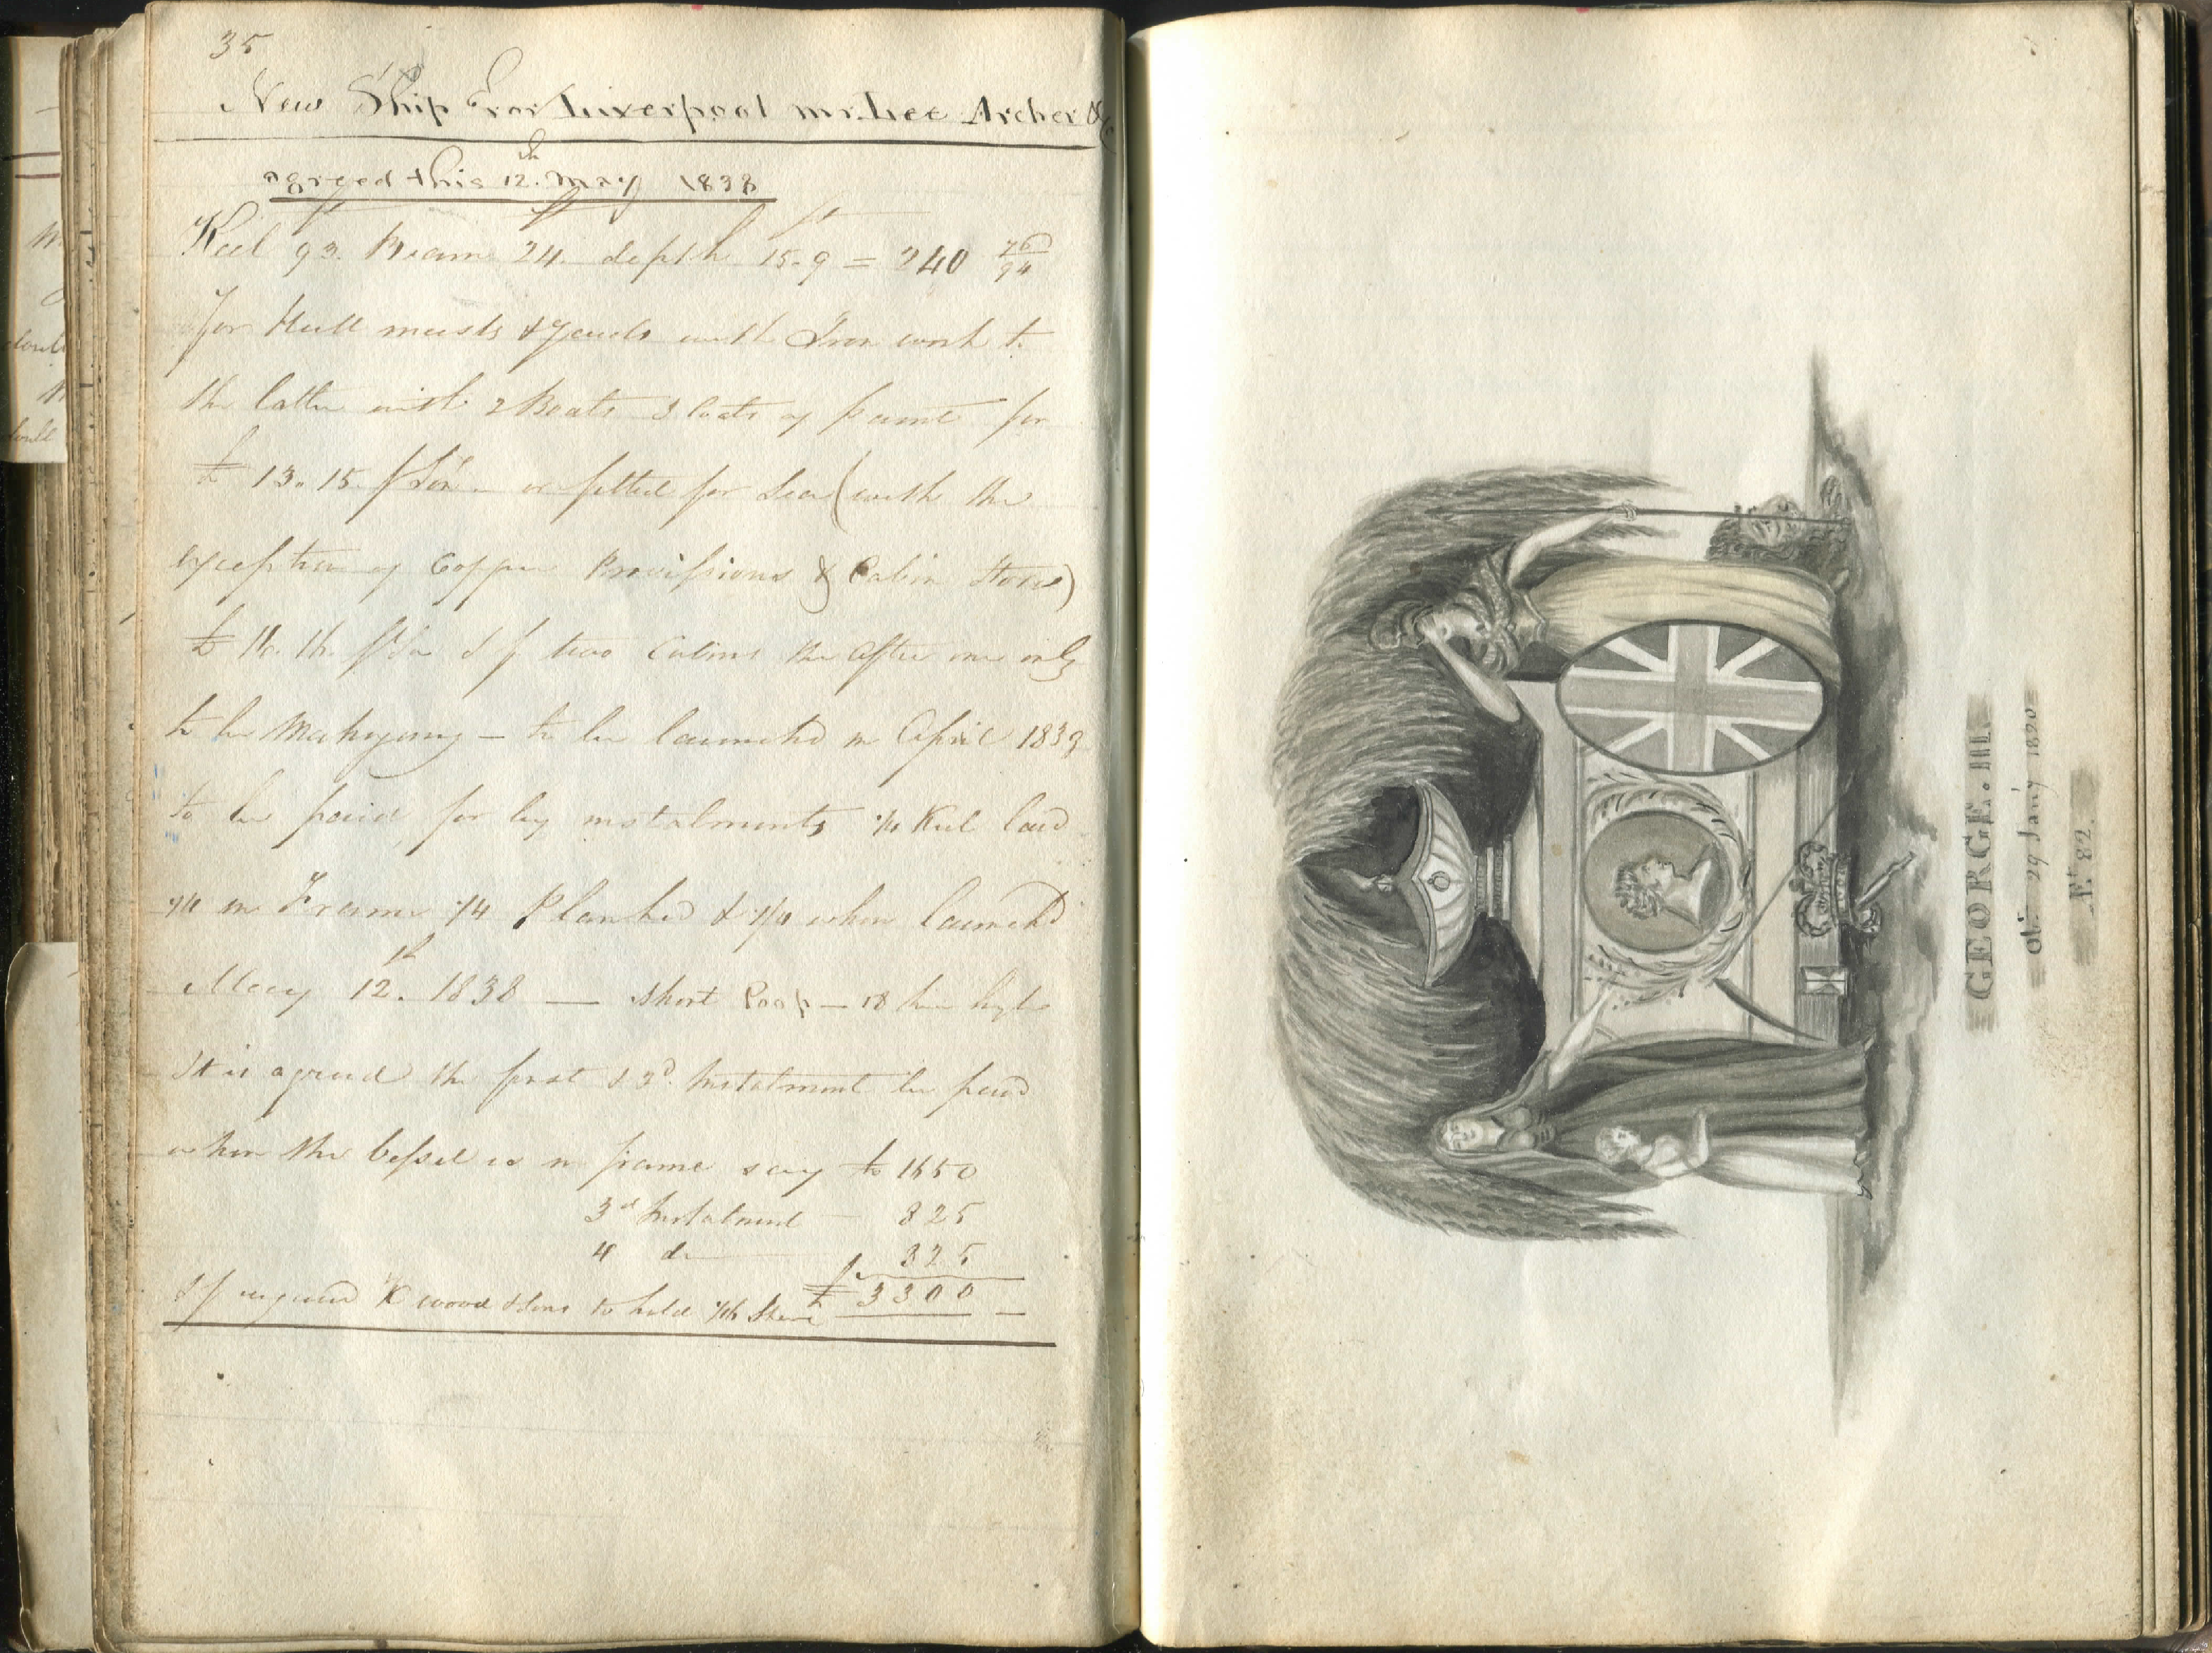 35
New Ship For Liverpool mr. Lee Archer & Co
agreed this 12th. May 1838
Keel 93 ft. Beam 24 ft. depth 15 ft - 9 = 240 76/94
for Hull masts & Yards with Iron work to
the latter with 2 Boats 3 Coats of paint for
£ 13. 15 p Ton. or fitted for Sea (with the
exception of Copper Provissions & Cabin Stores)
£ p Ton If two Cabins the After one only
to be Mahogany — to be launched in April 1839
to be paid for by instalments 1/4 Keel laid
1/4 in Frame 1/4 Planked & 1/4 when launched
May 12th. 1838 — Short Poop — 18
It is agreed the first & 2d. Instalment be paid
when the vessel is in frame say £ 1650
3d Instalment — 825
4 do 825
If required K wood & Sons to hold Share £ 3300 —
GEORGE. III.
Obt. 29 Jany 1820
Æt 82.